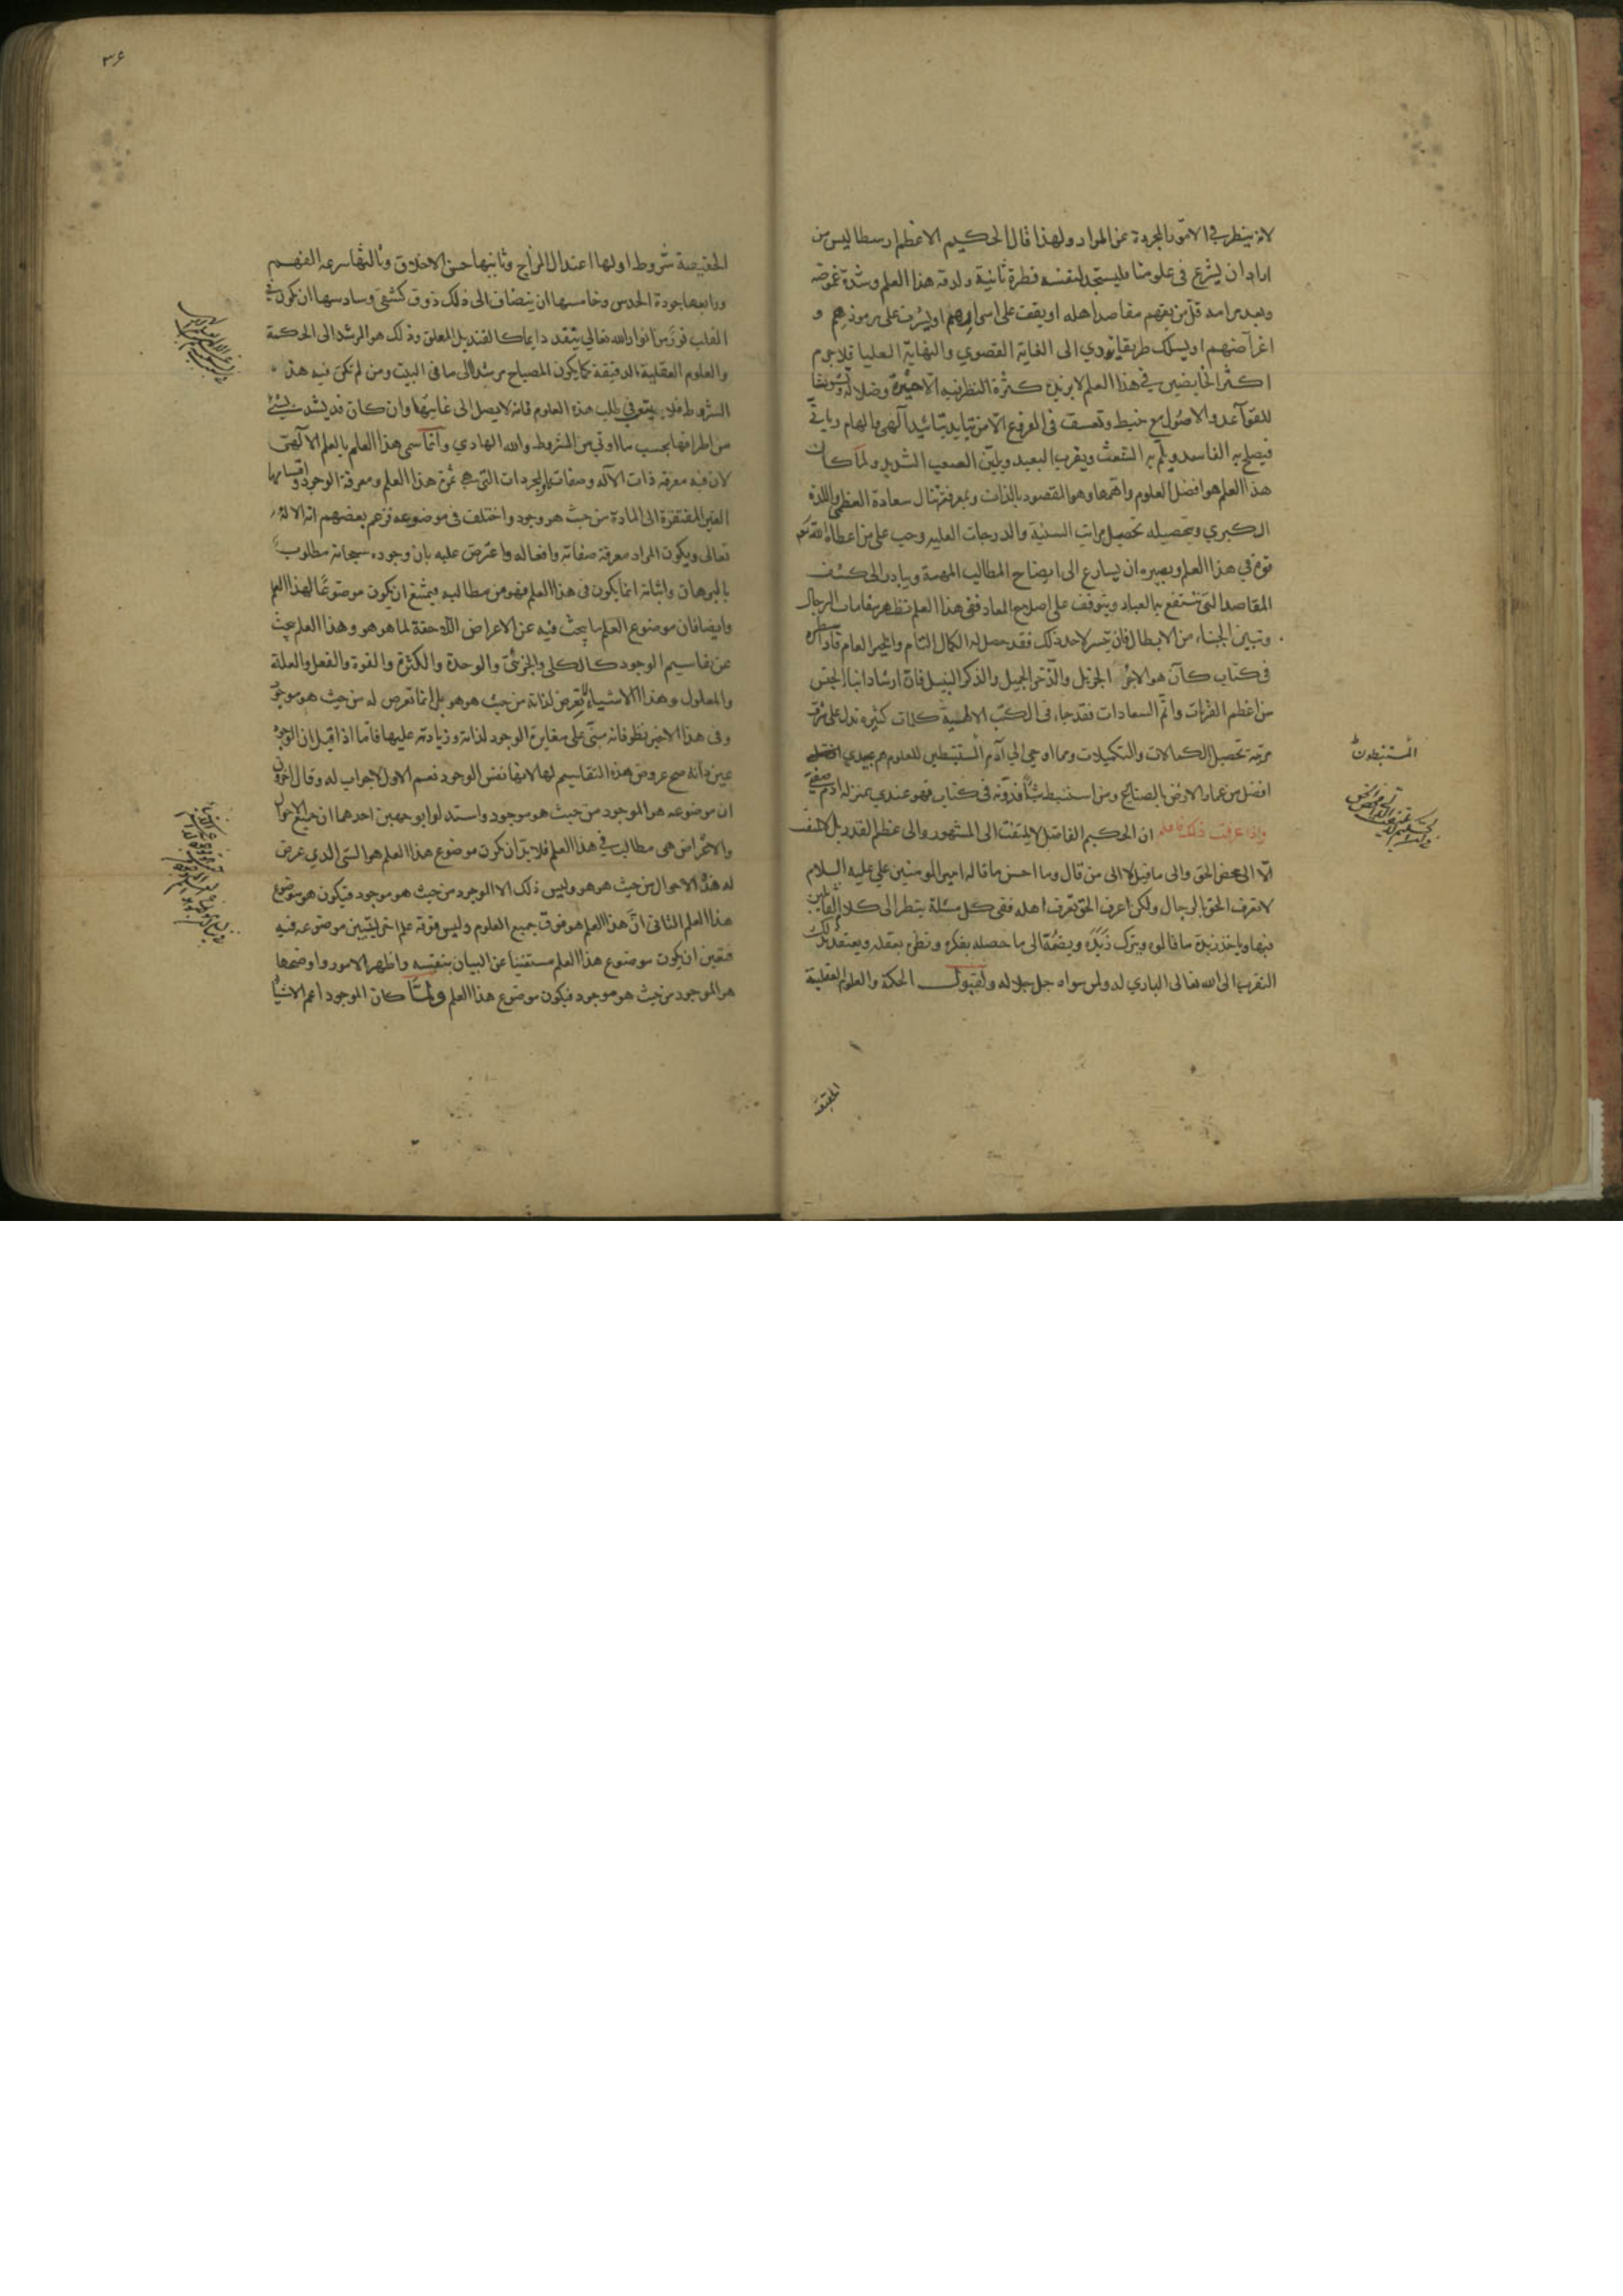 لانه ينظر في الامور المجردة عن المواد ولهذا قال الحكيم الاعظم ارسطاليس من
اراد ان يشرع في علومنا فليستجد لنفسه فطرة ثانية ولدقة هذا العلم وشدة غموضه
وبعد مرامه قل من يفهم مقاصد اهله او يقف على اسرارهم او يشرف على رموزهم و
اغراضهم او يسلك طريقا يؤدي الى الغاية القصوي والنهاية العليا فلا جرم
اكثر الخايضين في هذا العلم لا يزيده كثرة النظر فيه الا حيرة وضلالة وتشويشا
للقواعد والاصول مع خبط وتعسف في الفروع الا من تايد بتائيد آلهي والهام رباني
فيصلح به الفاسد ويلم به الشعث ويقرب البعيد ويلين الصعب الشديد ولما كان
هذا العلم هو افضل العلوم واهمها وهو المقصود بالذات وبمعرفته تنال سعادة العظمى واللذة
الكبري وبتحصيله تحصيل مراتب السنية والدرجات العلية وجب على من اعطاه الله
قوة في هذا العلم وبصيرة ان يسارع الى ايضاح المطالب المهمة ويبادر الى كشف
المقاصد التي تنتفع بها العباد ويتوقف على اصلاح المعاد ففى هذا العلم تظهر مقامات الرجال
وتبين الجبناء من الابطال فان تيسر لاحد ذلك فقد حصل له الكمال التام والخير العام فاذا سطره
في كتاب كان هو الاجر الجزيل والذخر الجميل والذكر النبيل فان ارشاد ابناء الجنس
من اعظم القربات واتم السعادات فقد جاء فى الكتب الالهية كلمات كثيرة تدل على شرف
مرتبة تحصيل الكمالات والتكميلات ومما اوحي الي آدم المستنبطين للعلوم هم عبيدي
افضل من عمار الارض بالصنايع ومن استنبط شيأ فدونه فى كتاب فهو عندي بمنزلة ادم صفيي
واذا عرفت ذلك فاعلم ان الحكيم الفاضل لا يلتفت الى المشهور والى عظم القدر بل لا يلتفت
الا الى محض الحق والى ما قيل لا الى من قال وما احسن ما قاله امير المومنين علي عليه السلام
لا تعرف الحق بالرجال ولكن اعرف الحق تعرف اهله ففى كل مسئلة ينظر الى كلام القائلين
فيها وياخذ زبدة ما قالوه ويترك زبده ويضمه الى ما حصله بفكره ونظر بعقله ويعتقد بذلك
التقرب الى الله تعالى الباري له ولمن سواه جل جلاله ولقبول الحكمة والعلوم العقلية
المستنبطون
الحقيقية
٣۶
الحقيقية شروط اولها اعتدال المزاج وثانيها حسن الاخلاق وثالثها سرعة الفهم
ورابعها جودة الحدس وخامسها ان ينضاف الى ذلك ذوق كشفي وسادسها ان يكون في
القلب نور من انوار الله تعالي يتقد دايما كالقنديل المعلق وذلك هو المرشد الى الحكمة
والعلوم العقلية الدقيقة كما يكون المصباح مرشدا الى ما فى البيت ومن لم تكن فيه هذه
الشروط فلا يتعب في طلب هذه العلوم فانه لا يصل الى غايتها وان كان قد يشد شيئ
من اطرافها بحسب ما اوتي من الشروط والله الهادي وانما سمى هذا العلم بالعلم الآلهى
لان فيه معرفة ذات الآله وصفاته والمجردات التى هي ثمرة هذا العلم ومعرفة الوجود واقسامها
الغير المفتقرة الى المادة من حيث هو وجود واختلف فى موضوعه فزعم بعضهم انه الاله
تعالى ويكون المراد معرفة صفاته وافعاله واعترض عليه بان وجوده سبحانه مطلوب
بالبرهان واثباته انما يكون فى هذا العلم فهو من مطالبه فيمتنع ان يكون موضوعا لهذا العلم
وايضا فان موضوع العلم ما يبحث فيه عن الاعراض اللاحقة لما هو هو وهذا العلم يبحث
عن تقاسيم الوجود كالكلي والجزئي والوحدة والكثرة والقوة والفعل والعلة
والمعلول وهذا الاشياء لا تعرض لذاته من حيث هو هو بل انما تعرض له من حيث هو موجود
وفى هذا الاخير نظر فانه مبني على مغايرة الوجود لذاته وزيادته عليها فاما اذا قيل ان الوجود
عين ذاته صح عروض هذه التقاسيم لها لانها نفس الوجود نعم الاول لا جواب له وقال اخرون
ان موضوعه هو الموجود من حيث هو موجود واستدلوا بوجهين احدهما ان جميع الاحوال
والاعراض هى مطالب في هذا العلم فلا بد ان يكون موضوع هذا العلم هو الشي الذي عرض
له هذه الاحوال من حيث هو هو وليس ذلك الا الموجود من حيث هو موجود فيكون هو موضوع
هذا العلم الثانى ان هذا العلم هو فوق جميع العلوم وليس فوقه علم اخر ليتبين موضوعه فيه
فتعين ان يكون موضوع هذا العلم مستغنيا عن البيان بنفسه واظهر الامور واوضحها
هو الموجود من حيث هو موجود فيكون موضوع هذا العلم ولما كان الموجود اعم الاشياء